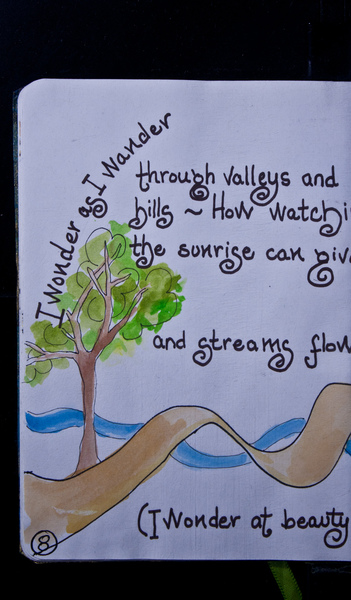 I Wonder as I Wander
through valleys and
hills ~ How watchi
the sunrise can giv
and streams flow
(I Wonder at beauty
8